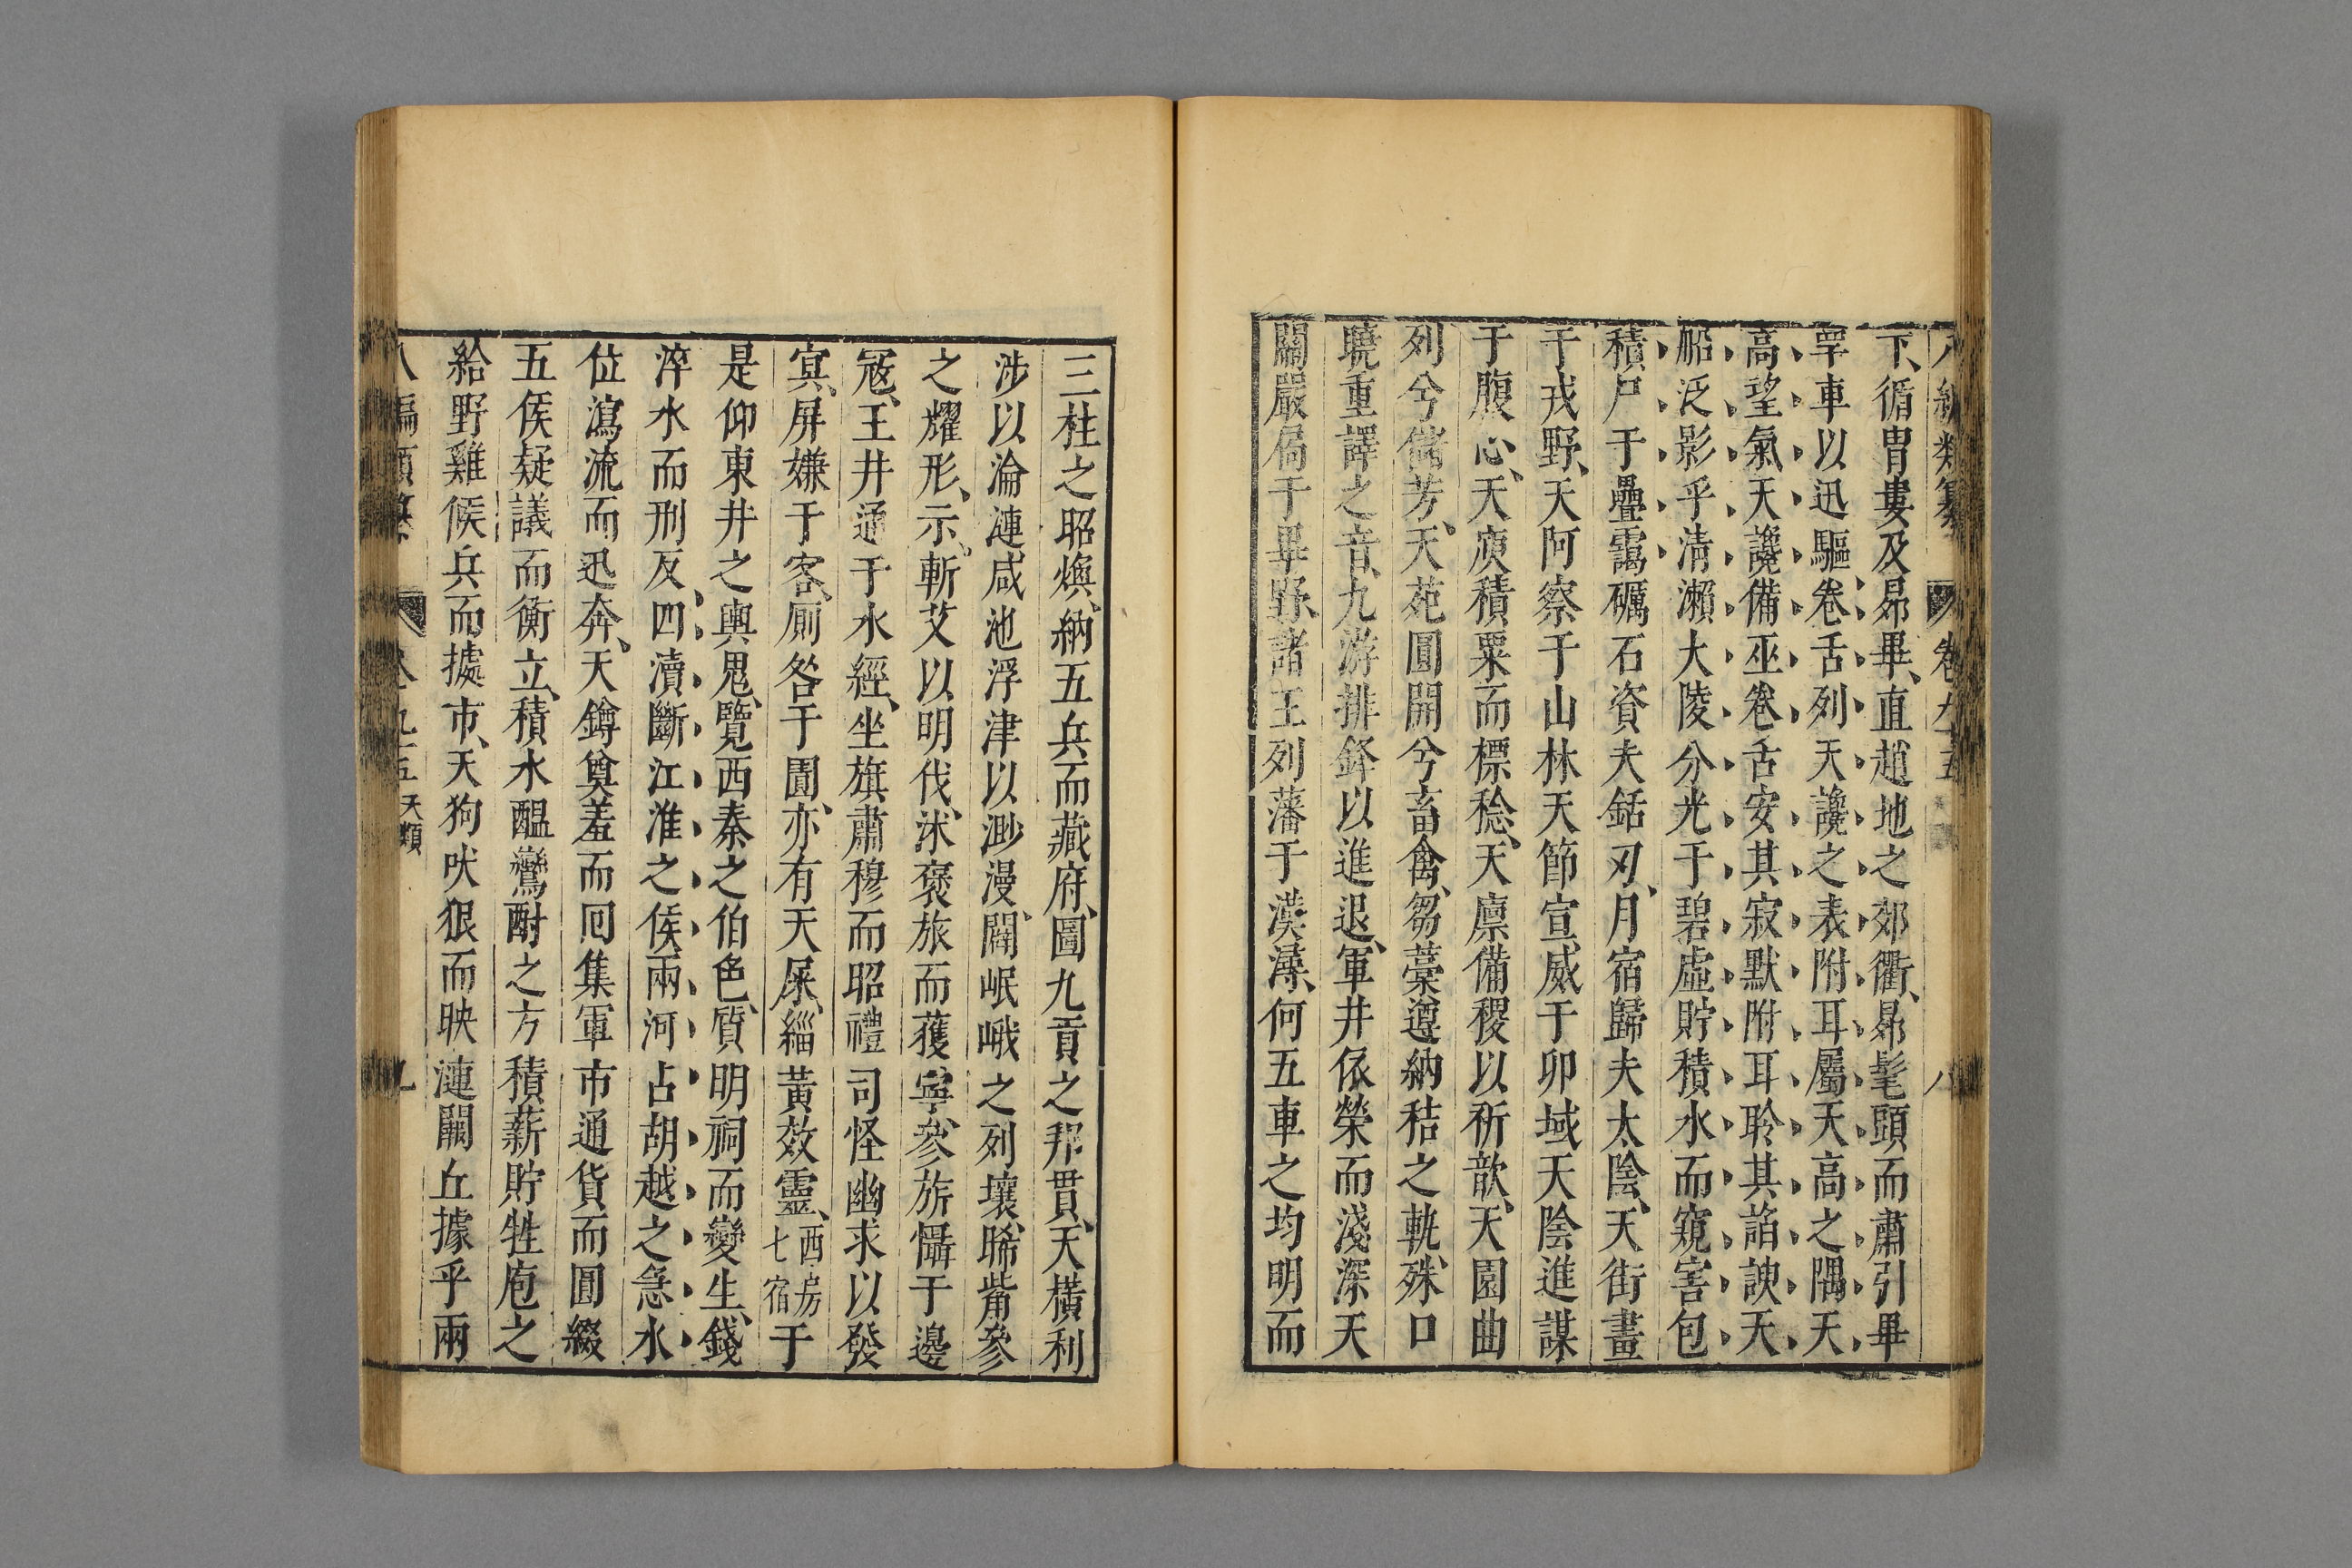 八編類纂 卷九十五 八
下、循胃婁及昴畢、直趙地之郊衢、昴髦頭而肅引畢
罕車以迅驅卷舌列天讒之表附耳屬天高之隅天
高望氣天讒備巫卷舌安其寂默附耳聆其謟諛天
船泛影乎清瀨大陵分光于碧虛貯積水而窺害包
積尸于疊靄礪石資夫銛刃、月宿歸夫太陰、天街畫
于戎野、天阿察于山林天節宣威于卯域天陰進謀
于腹心、天庾積粟而標稔、天廩備稷以祈歆、天園曲
列兮儲芳、天苑圓開兮畜禽、芻藁遵納秸之軌、殊口
曉重譯之音、九游排鋒以進退、軍井依榮而淺深天
關嚴扃于畢野、諸王列藩于漢潯、何五車之均明而
三柱之昭煥、納五兵而藏府、圖九貢之邦貫、天橫利
涉以淪漣咸池浮津以渺漫、闢岷峨之列壤、睎觜參
之耀形、示斬艾以明伐、沭襃旅而獲寧、參旂懾于邊
寇、王井通于水經、坐旗肅穆而昭禮司怪幽求以發
寘、屏嫌于客、厠咎于圊、亦有天屎、緇黃效靈、西房七宿于
是仰東井之輿鬼、覽西秦之伯色、質明祠而變生、錢
淬水而刑反四瀆斷江淮之侯兩河占胡越之急水
位瀉流而迅奔、天鐏奠羞而囘集軍市通貨而圓綴
五侯疑議而衡立、積水醞鸞酎之方積薪貯牲庖之
給野雞候兵而據市、天狗吠狠而映漣闕丘據乎兩
八編類纂 卷九十五 天類 九